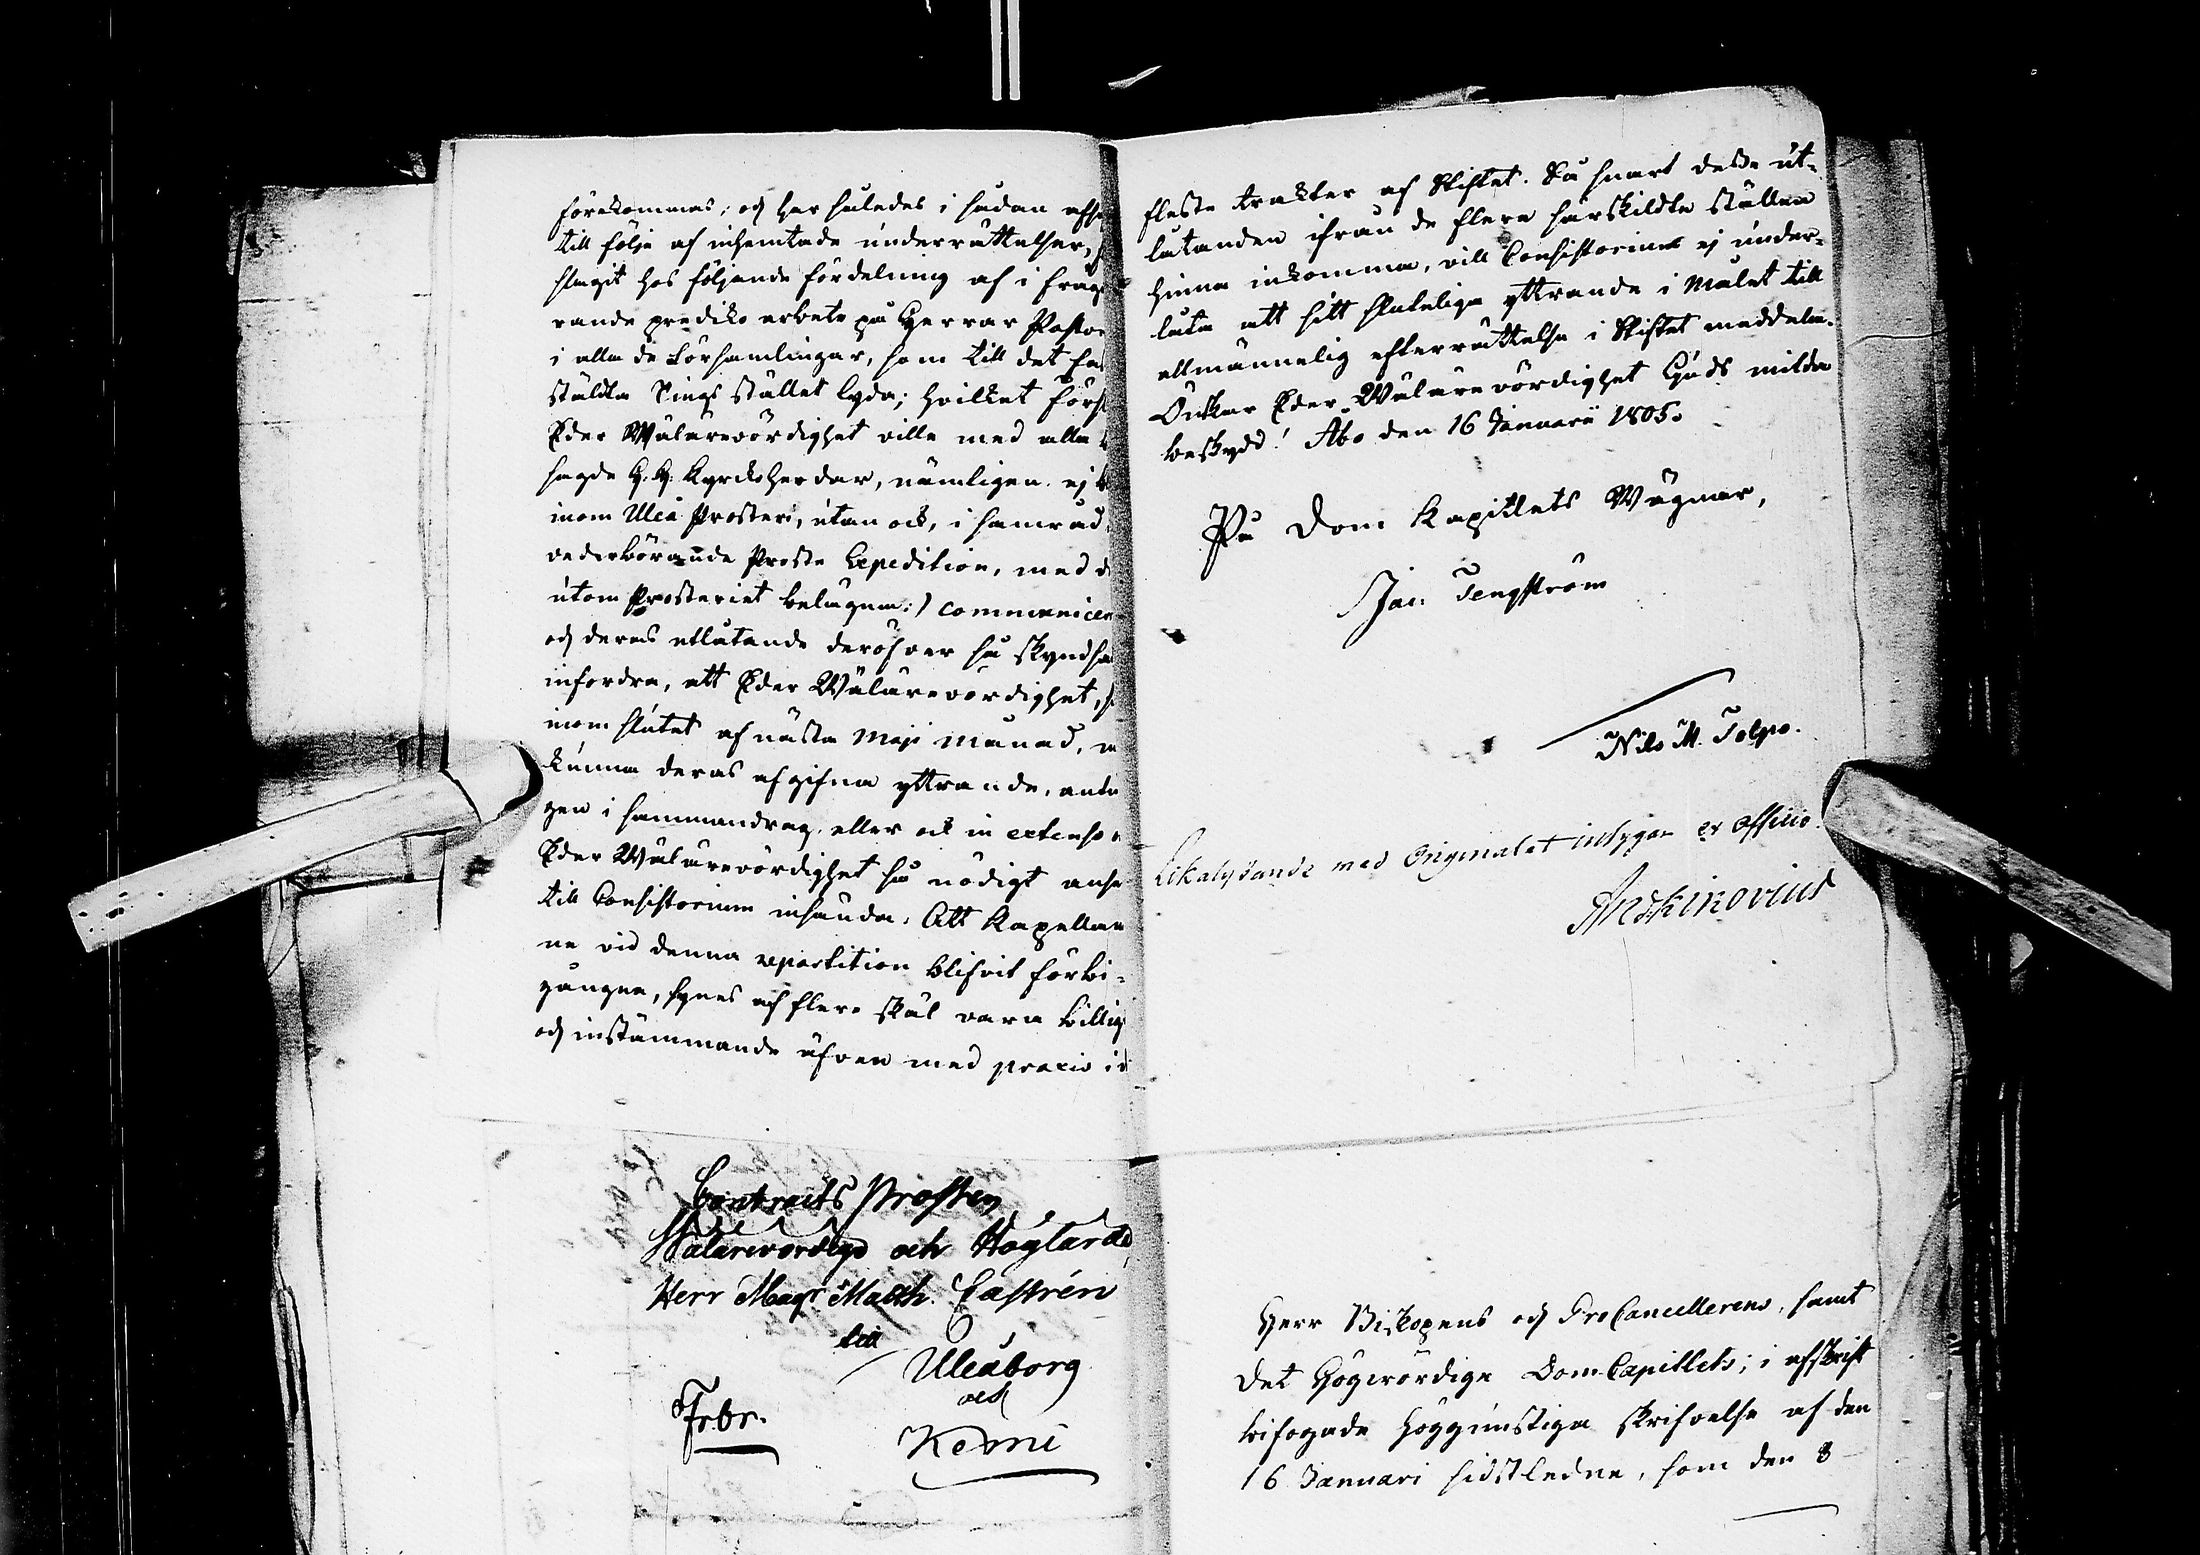 förekommas; och har således i sådan afse
till följe af inhemtade underrättelser,
slagit hos följande fördelning af i fråge
rande prediko arbete på Herrar Pasto
i alla de Församlingar, som till det fas
stälda Tings stället lyda; hvilket förs
Eder Wälärevördighet ville med alla
sagde H. H. Kyrckoherdar, nämligen ej
inom Uleå Prosteri, utan ock, i samråd
vederbörande Prosts Expedition, med d
utom Prosteriet belägna:) communicer
och deras utlåtande deröfver så skyndsa
infordra, att Eder Wälärevördighet, s
inom slutet af nästa Maji månad, m
kunna deras afgifna yttrande, antin
gen i sammandrag, eller ock in extenso
Eder Wälärevördighet så nödigt anse
till Consistorium insända. Att Kapellan
ne vid denna repartition blifvit förbi-
gångne, synes af flere skäl vara billigt
och instämmande äfven med praxis i d
flesta trakter af Stiftet. Så snart desse ut-
låtanden ifrån de flera särskildte ställen
hinna inkomma, vill Consistorium ej under-
låta att sitt slutelige yttrande i Målet till
allmännelig efterrättelse i Stiftet meddela.
Önskar Eder Wälärevördighet Guds milda
beskydd! Åbo den 16 Januarii 1805.
På Dom Kapitlets Wägnar,
Jac. Tengström
Nils M. Tolpo.
Likalydande med Originalet intygar ex officio.
Contracts Prosten
Wälärevördige och Höglärde
Herr Magr Matth. Castrén
till
Uleåborg
och
Frbr.
Kemi
Herr Biskopens och ProCancellerens, samt
det Högvördige Dom-Capitlets; i afskrift
bifogade höggunstiga skrifvelse af den
16 Januari sidstledne, som den 8